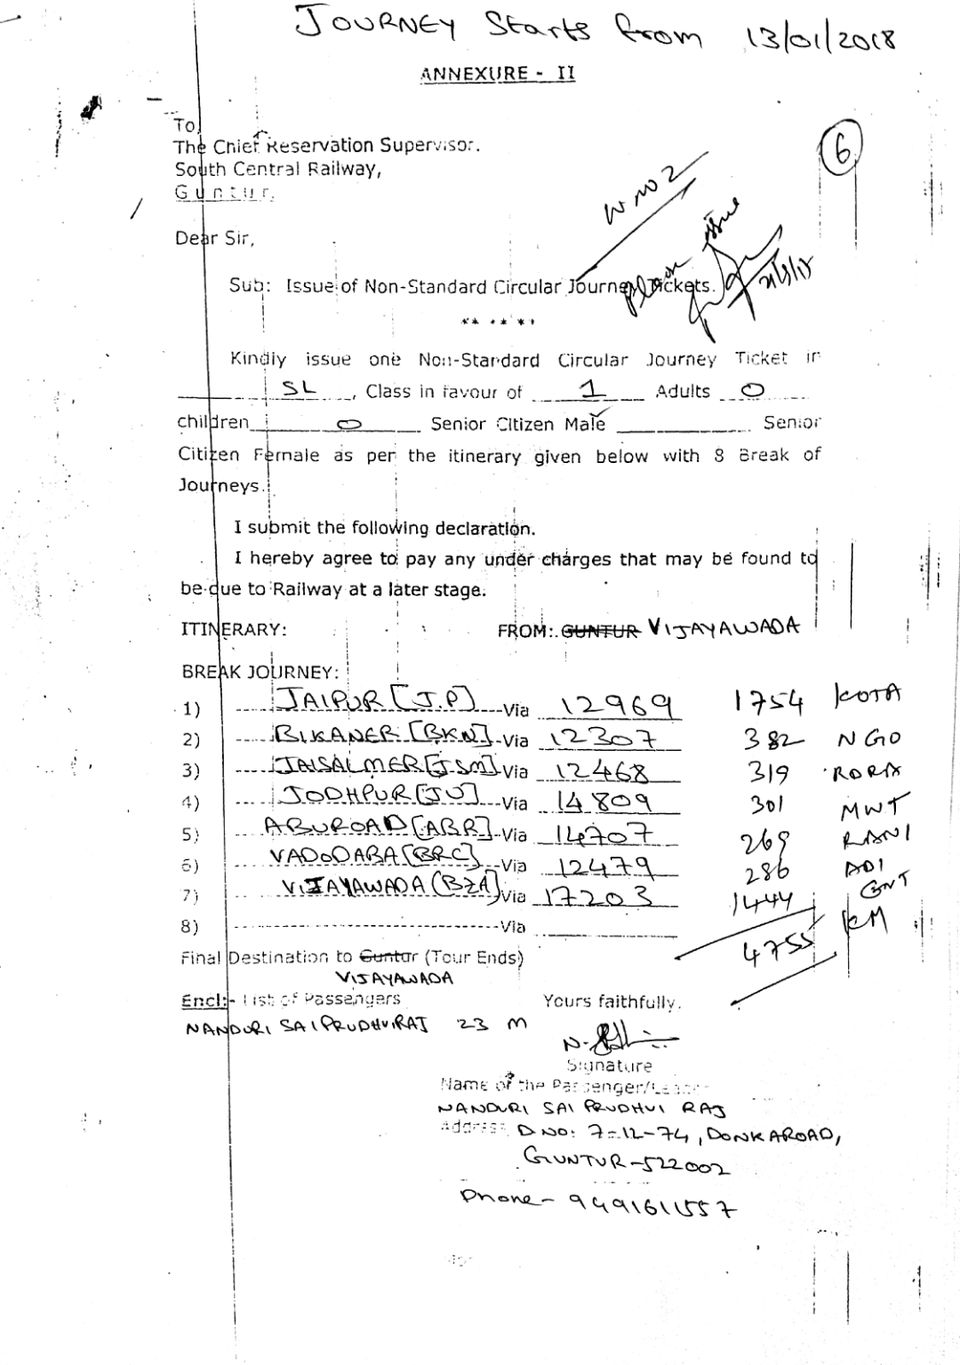 JOURNEY Starts from 13/01/2018
ANNEXURE - II
To,
The Chief Reservation Supervisor.
6
South Central Railway,
Guntur.
W no 2
Dear Sir,
Please issue
Sub: Issue of Non-Standard Circular Journey Tickets.
** ** **
Kindly issue one Non-Standard Circular Journey Ticket in
SL, Class in favour of 1 Adults 0
children 0 Senior Citizen Male Senior
Citizen Female as per the itinerary given below with 8 Break of
Journeys.
I submit the following declaration.
I hereby agree to pay any under charges that may be found to
be due to Railway at a later stage.
ITINERARY: FROM: GUNTUR VIJAYAWADA
BREAK JOURNEY:
1) JAIPUR [J.P] Via 12969 1754 KOTA
2) BIKANER [BKN] Via 12307 382 NGO
3) JAISALMER [JSM] Via 12468 319
4) JODHPUR [JU] Via 14809 301 MWT
5) ABUROAD [ABR] Via 14707 269 RANI
6) VADODARA [BRC] Via 12479 286 ADI
7) VIJAYAWADA (BZA) Via 17203 1444 GNT
8) Via 4755 KM
Final Destination to Guntur (Tour Ends)
VIJAYAWADA
Encl:- List of Passengers Yours faithfully.
NANDURI SAI PRUDHVIRAJ 23 M
Signature
Name of the Passenger/
NANDURI SAI PRUDHVI RAJ
Address D NO: 7-12-74, DONKAROAD,
GUNTUR-522002
Phone- 9491611557